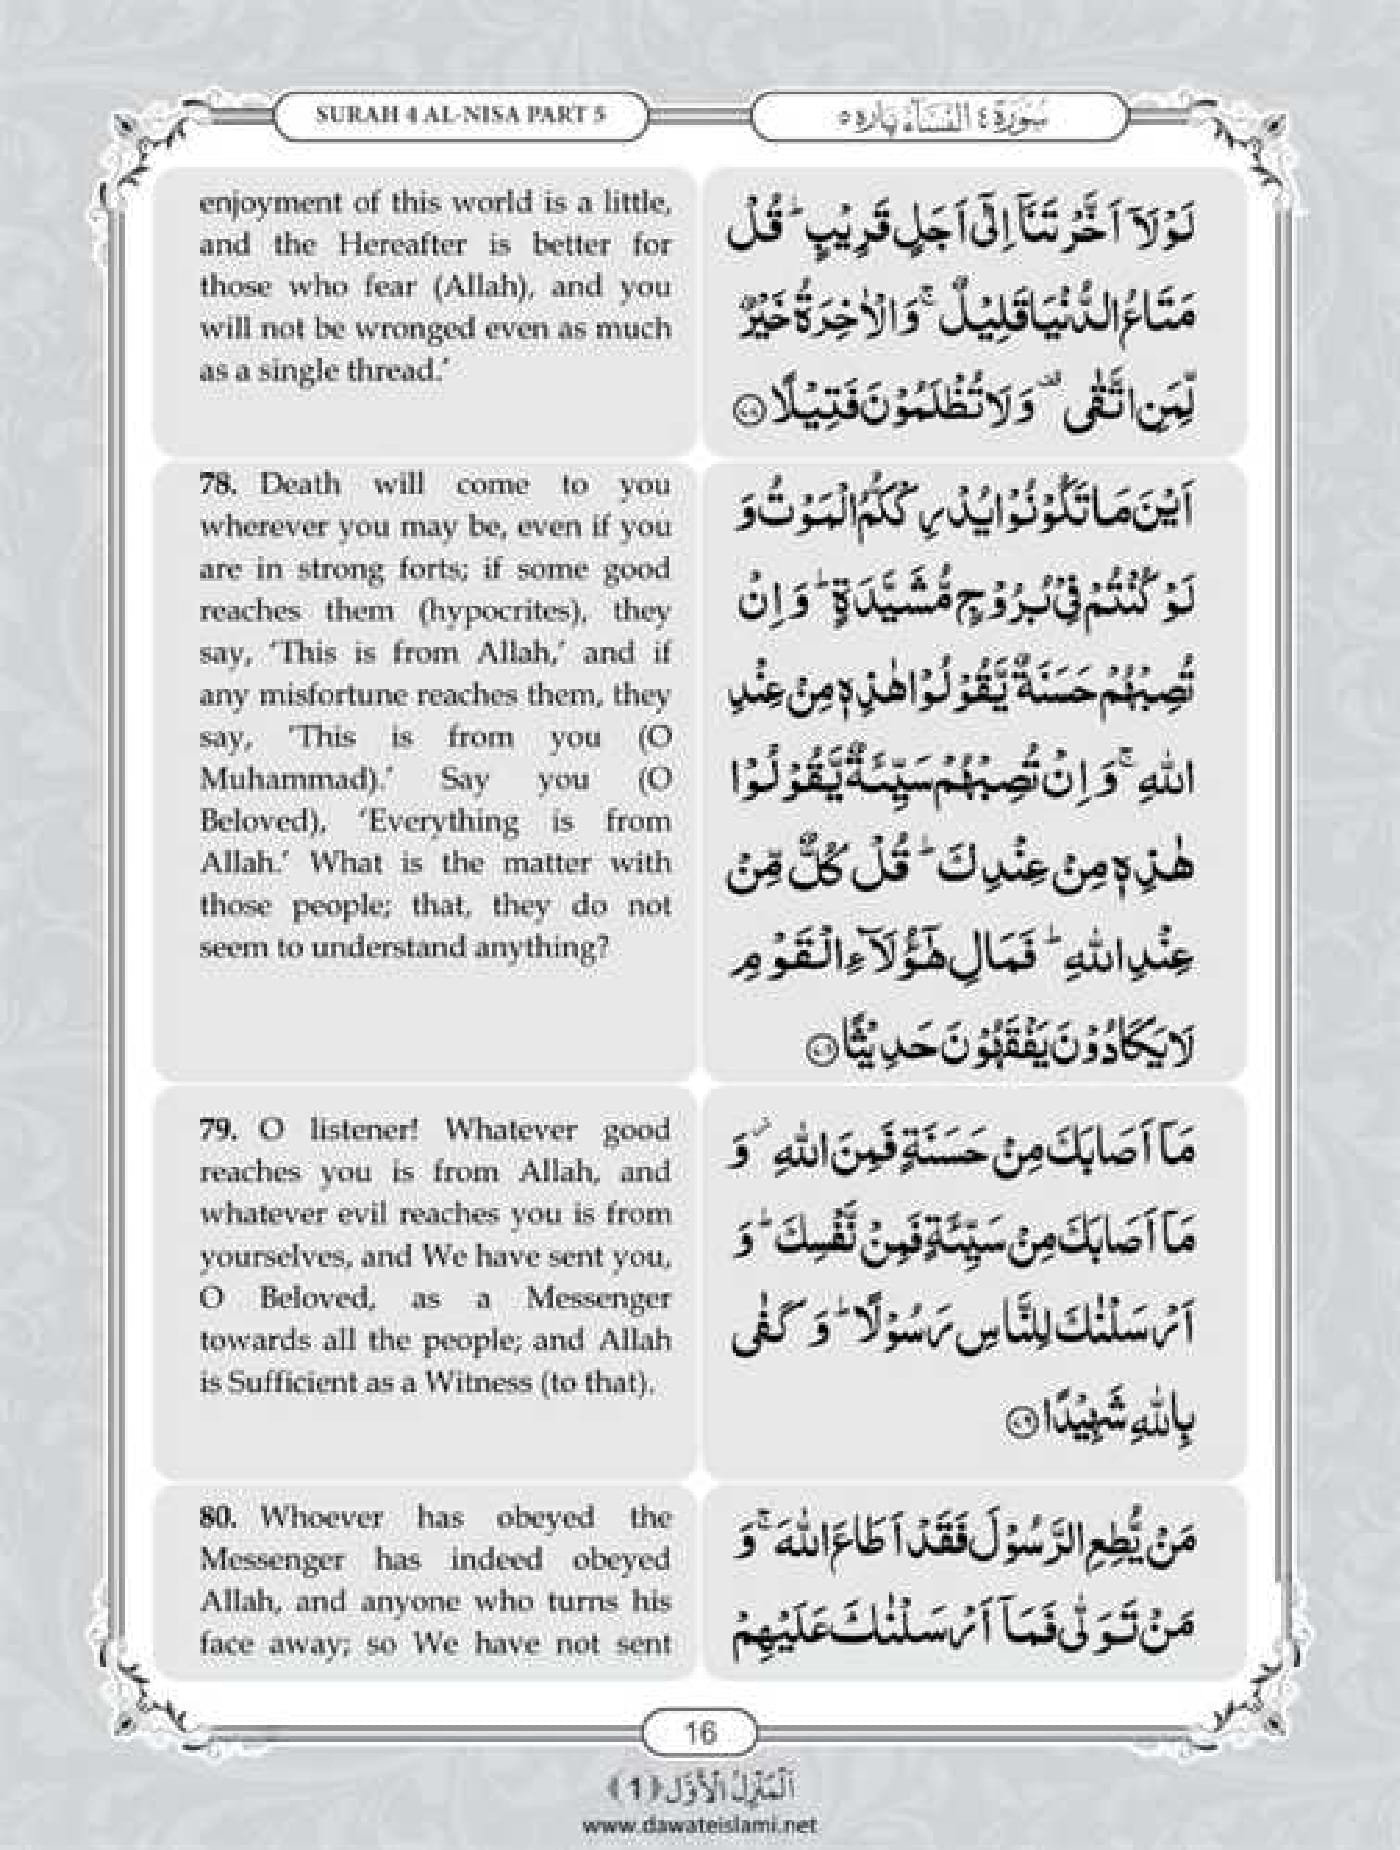 SURAH 4 AL-NISA PART 5
سُوْرَةُ ٤ النِّسَآء پاره ٥
enjoyment of this world is a little,
and the Hereafter is better for
those who fear (Allah), and you
will not be wronged even as much
as a single thread.’
لَوْلَاۤ اَخَّرْتَنَاۤ اِلٰۤى اَجَلٍ قَرِيْبٍ ؕ قُلْ
مَتَاعُ الدُّنْيَا قَلِيْلٌ ۚ وَ الْاٰخِرَةُ خَيْرٌ
لِّمَنِ اتَّقٰى ۫ وَ لَا تُظْلَمُوْنَ فَتِيْلًا ﴿۷۷﴾
78. Death will come to you
wherever you may be, even if you
are in strong forts; if some good
reaches them (hypocrites), they
say, ‘This is from Allah,’ and if
any misfortune reaches them, they
say, ‘This is from you (O
Muhammad).’ Say you (O
Beloved), ‘Everything is from
Allah.’ What is the matter with
those people; that, they do not
seem to understand anything?
اَيْنَ مَا تَكُوْنُوْا يُدْرِكْكُّمُ الْمَوْتُ وَ
لَوْ كُنْتُمْ فِيْ بُرُوْجٍ مُّشَيَّدَةٍ ؕ وَ اِنْ
تُصِبْهُمْ حَسَنَةٌ يَّقُوْلُوْا هٰذِهٖ مِنْ عِنْدِ
اللّٰهِ ۚ وَ اِنْ تُصِبْهُمْ سَيِّئَةٌ يَّقُوْلُوْا
هٰذِهٖ مِنْ عِنْدِكَ ؕ قُلْ كُلٌّ مِّنْ
عِنْدِ اللّٰهِ ؕ فَمَالِ هٰۤؤُلَآءِ الْقَوْمِ
لَا يَكَادُوْنَ يَفْقَهُوْنَ حَدِيْثًا ﴿۷۸﴾
79. O listener! Whatever good
reaches you is from Allah, and
whatever evil reaches you is from
yourselves, and We have sent you,
O Beloved, as a Messenger
towards all the people; and Allah
is Sufficient as a Witness (to that).
مَاۤ اَصَابَكَ مِنْ حَسَنَةٍ فَمِنَ اللّٰهِ ۫ وَ
مَاۤ اَصَابَكَ مِنْ سَيِّئَةٍ فَمِنْ نَّفْسِكَ ؕ وَ
اَرْسَلْنٰكَ لِلنَّاسِ رَسُوْلًا ؕ وَ كَفٰى
بِاللّٰهِ شَهِيْدًا ﴿۷۹﴾
80. Whoever has obeyed the
Messenger has indeed obeyed
Allah, and anyone who turns his
face away; so We have not sent
مَنْ يُّطِعِ الرَّسُوْلَ فَقَدْ اَطَاعَ اللّٰهَ ۚ وَ
مَنْ تَوَلّٰى فَمَاۤ اَرْسَلْنٰكَ عَلَيْهِمْ
16
اَلْمَنْزِلُ الْاَوَّل (1)
www.dawateislami.net